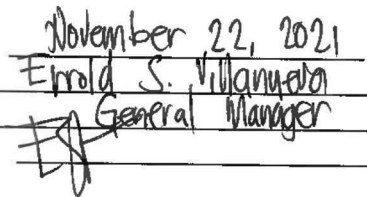 November 22, 2021
Errold S. Villanueva
General Manager